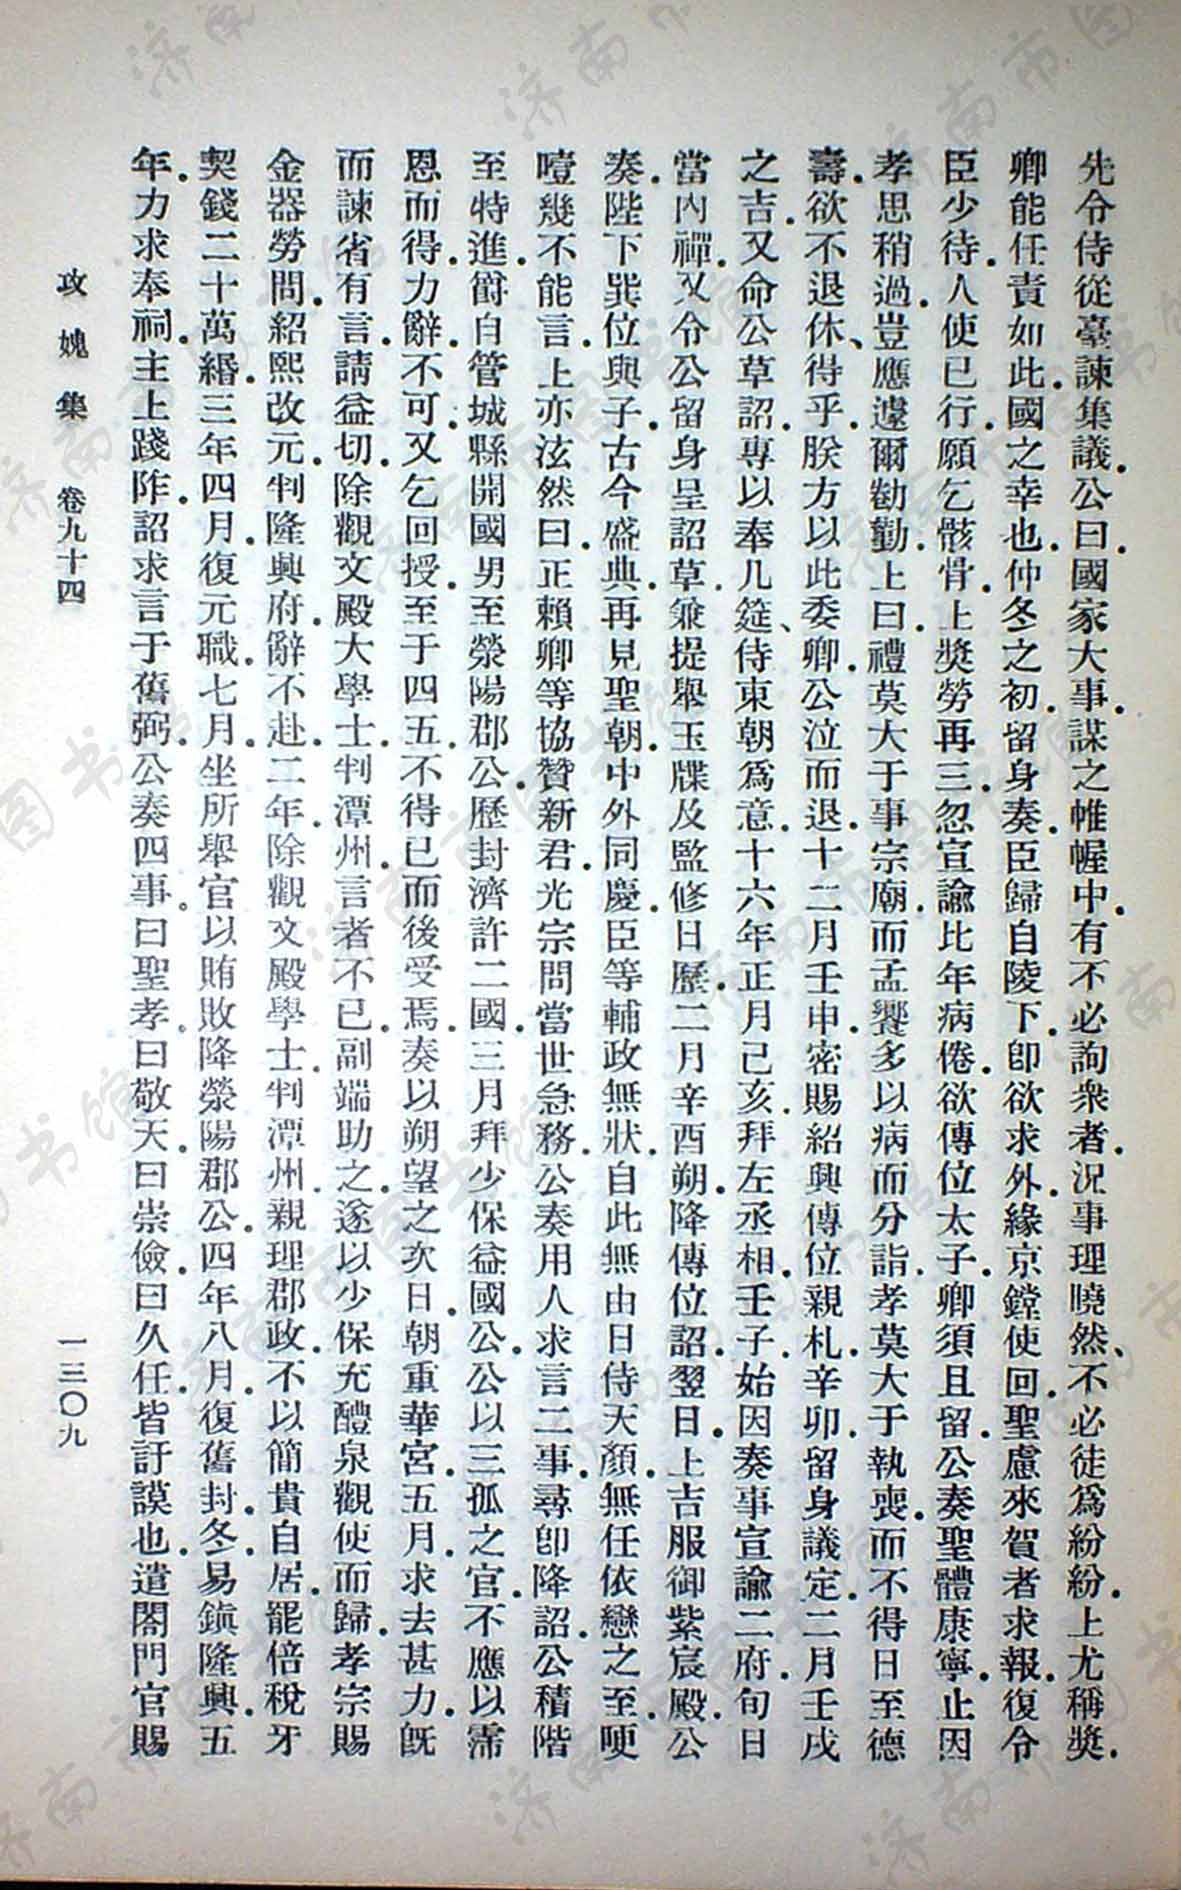 先令侍從臺諫集議．公曰．國家大事．謀之帷幄中．有不必詢衆者．況事理曉然、不必徒爲紛紛．上尤稱獎．
卿能任責如此．國之幸也．仲冬之初．留身奏．臣歸自陵下．卽欲求外．緣京鏜使回．聖慮來賀者求報．復令
臣少待．人使已行．願乞骸骨．上獎勞再三．忽宣諭比年病倦．欲傳位太子．卿須且留．公奏聖體康寧．止因
孝思稍過．豈應遽爾勌勤．上曰．禮莫大于事宗廟．而孟饗多以病而分詣．孝莫大于執喪．而不得日至德
壽．欲不退休、得乎．朕方以此委卿．公泣而退．十二月壬申．密賜紹興傳位親札．辛卯．留身議定．二月壬戌
之吉．又命公草詔．專以奉几筵、侍東朝爲意．十六年正月己亥．拜左丞相．壬子．始因奏事宣諭二府．旬日
當內禪．又令公留身呈詔草．兼提舉玉牒及監修日曆．二月辛酉朔．降傳位詔．翌日．上吉服御紫宸殿．公
奏．陛下巽位與子．古今盛典．再見聖朝．中外同慶．臣等輔政無狀．自此無由日侍天顏．無任依戀之至．哽
噎幾不能言．上亦泫然曰．正賴卿等協贊新君．光宗問當世急務．公奏用人求言二事．尋卽降詔．公積階
至特進．爵自管城縣開國男至滎陽郡公．歷封濟許二國．三月拜少保益國公．公以三孤之官．不應以霈
恩而得．力辭．不可．又乞回授．至于四五．不得已而後受焉．奏以朔望之次日．朝重華宮．五月．求去甚力．旣
而諫省有言．請益切．除觀文殿大學士．判潭州．言者不已．副端助之．遂以少保充醴泉觀使而歸．孝宗賜
金器勞問．紹熙改元．判隆興府．辭不赴．二年．除觀文殿學士．判潭州．親理郡政．不以簡貴自居．罷倍稅牙
契錢二十萬緡．三年四月．復元職．七月．坐所舉官以賄敗．降滎陽郡公．四年八月．復舊封．冬．易鎭隆興．五
年．力求奉祠．主上踐阼．詔求言于舊弼．公奏四事．曰聖孝．曰敬天．曰崇儉．曰久任．皆訏謨也．遣閤門官賜
攻媿集 卷九十四 一三〇九
济南市图书馆